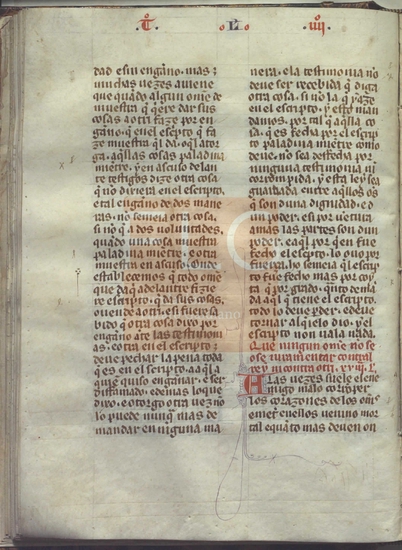 T. L. IIII
dad e sin engano. mas
muchas vezes aviene
que quãdo algun ome de
muestra q̃ q̃ere dar sus
cosas a otri faze por en
gano. q̃ en el escripto q̃ fa
ze muestra q̃l da. o q̃l ator
ga. aq̃llas cosas paladina
miẽtre. y en ascuso delan
te testigos dize otra cosa
q̃ no diziera en el escripto.
e tal engano de dos mane
ras. no semeia otra cosa.
si no q̃ a dos voluntades.
quãdo una cosa muestra
paladina miẽtre. e otra
muestra en ascuso. Onde
establecemos q̃ todo ome
que daq̃ adelantre fizie
re escripto. q̃ da sus cosas.
o vende a otri. e si fuere sa
bido q̃ otra cosa dixo por
engano ãte las testimonias
e otra en el escripto:
deve pechar la pena toda
q̃ es en el escripto. a aq̃l a
qui quiso enganar. e ser
disfamado. e demas lo que
dixo. e otorgo otra vez no
lo puede nunq̃ mas de
mandar en ninguna ma
nera. e la testimonia no
deve ser recebida q̃ diga
otra cosa. si no la q̃ yaze
en el escripto. y esto man
damos. por tal q̃ aq̃lla co
sa. q̃ es fecha por el escrip
to paladina miẽtre como
deve. no sea desfecha por
ninguna testimonia
corrompida. y esta ley sea
guardada entre aq̃llos os
q̃ son duna dignidad. e dun
poder. e si por vẽtura
amas las partes son dun
poder. e aq̃l por quien fue
fecho el escripto. lo ovo por
fuerça. lo semeia q̃l escrip
to fue fecho mas por coy
ta q̃ por grado. quãto dema
da aq̃l q̃ tiene el escripto.
todo lo deve perder. e deve
tornar al quel o dio. y el
escripto non vala nada.
Que ningun ome no se
ose iuramentar contral
rey ni contra otri. xviii. L.
A las vezes suele el ene
migo malo corrõper
los corazones de los oms
e meter en ellos venino mor
tal e quãto mas deven on